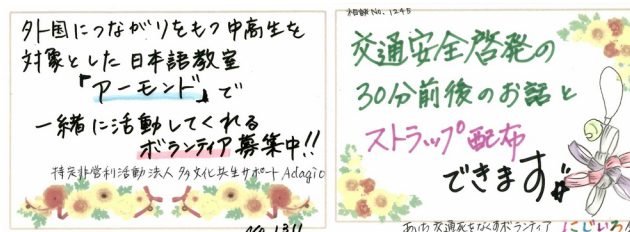 外国につながりをもつ中高生を
対象とした日本語教室
「アーモンド」で
一緒に活動してくれる
ボランティア募集中!!
特定非営利活動法人 多文化共生サポートAdagio
相談No.1245
交通安全啓発の
30分前後のお話と
ストラップ配布
できます
あいち交通死をなくすボランティア にじいろ